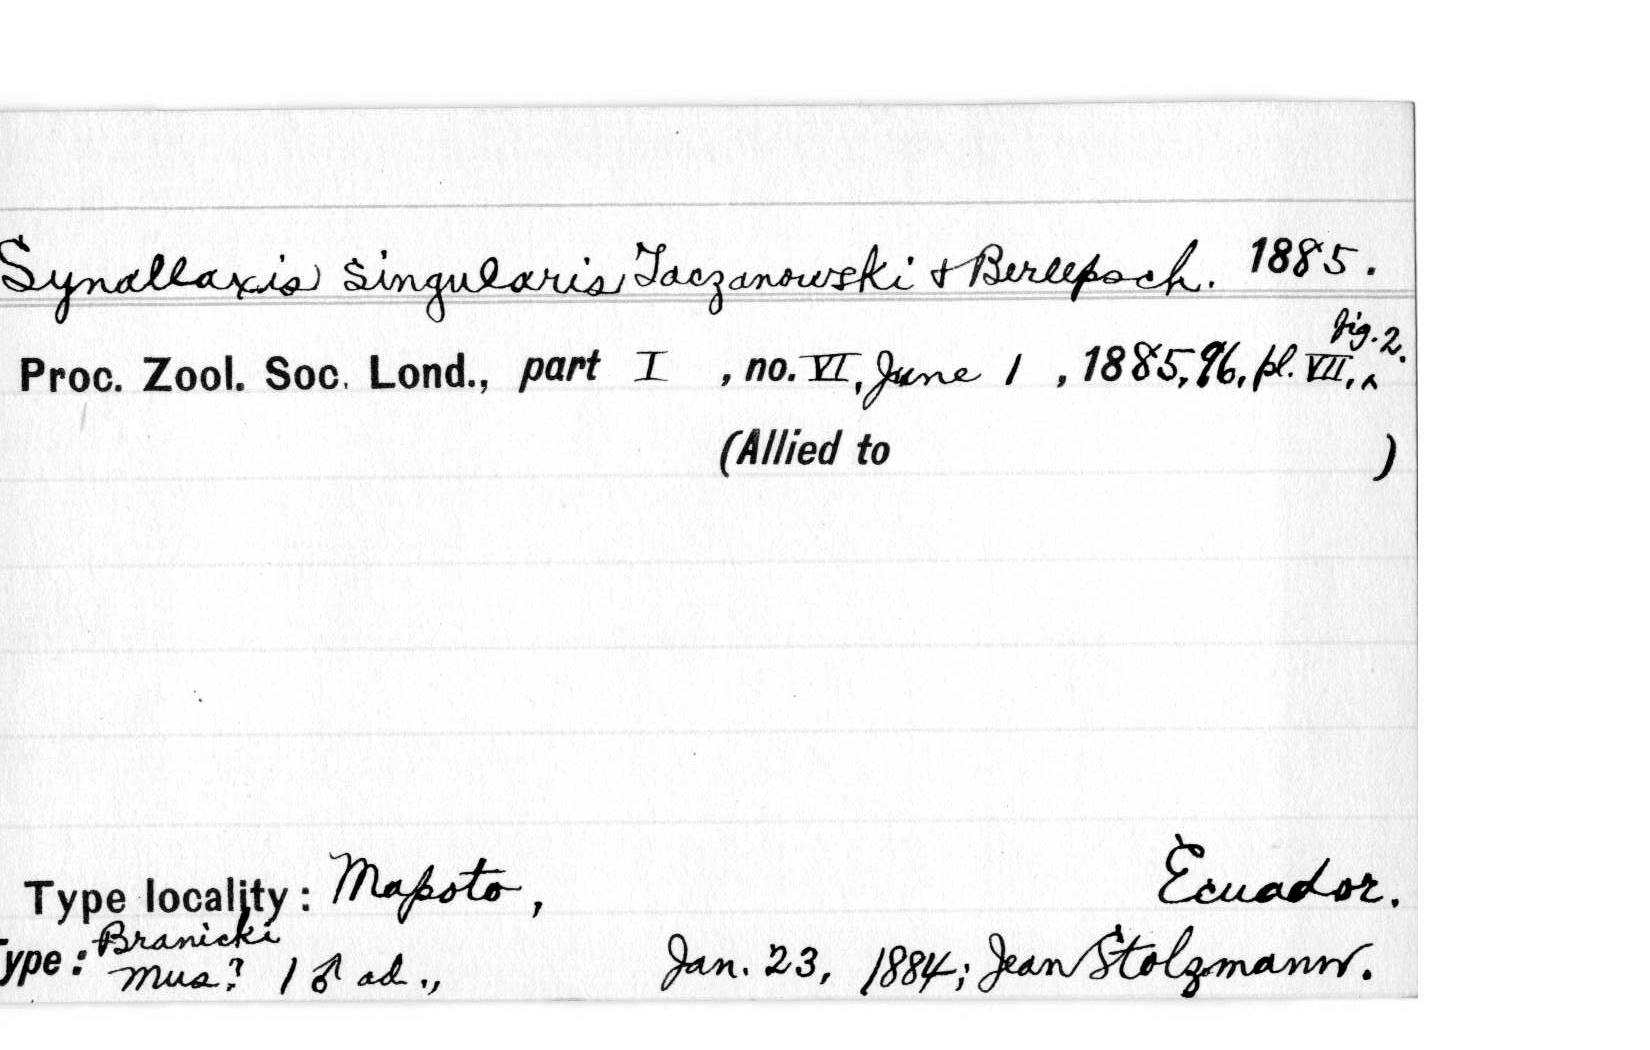 Synallaxis singularis Taczanowski & Berlepsch. 1885.
Proc. Zool. Soc. Lond., part I , no. VI, June 1 , 1885, 96, pl. VII, ^ fig. 2.
(Allied to )
Type locality: Mapoto, Ecuador.
Type: Branicki Mus? 1 ♂ ad., Jan. 23, 1884; Jean Stolzmann.